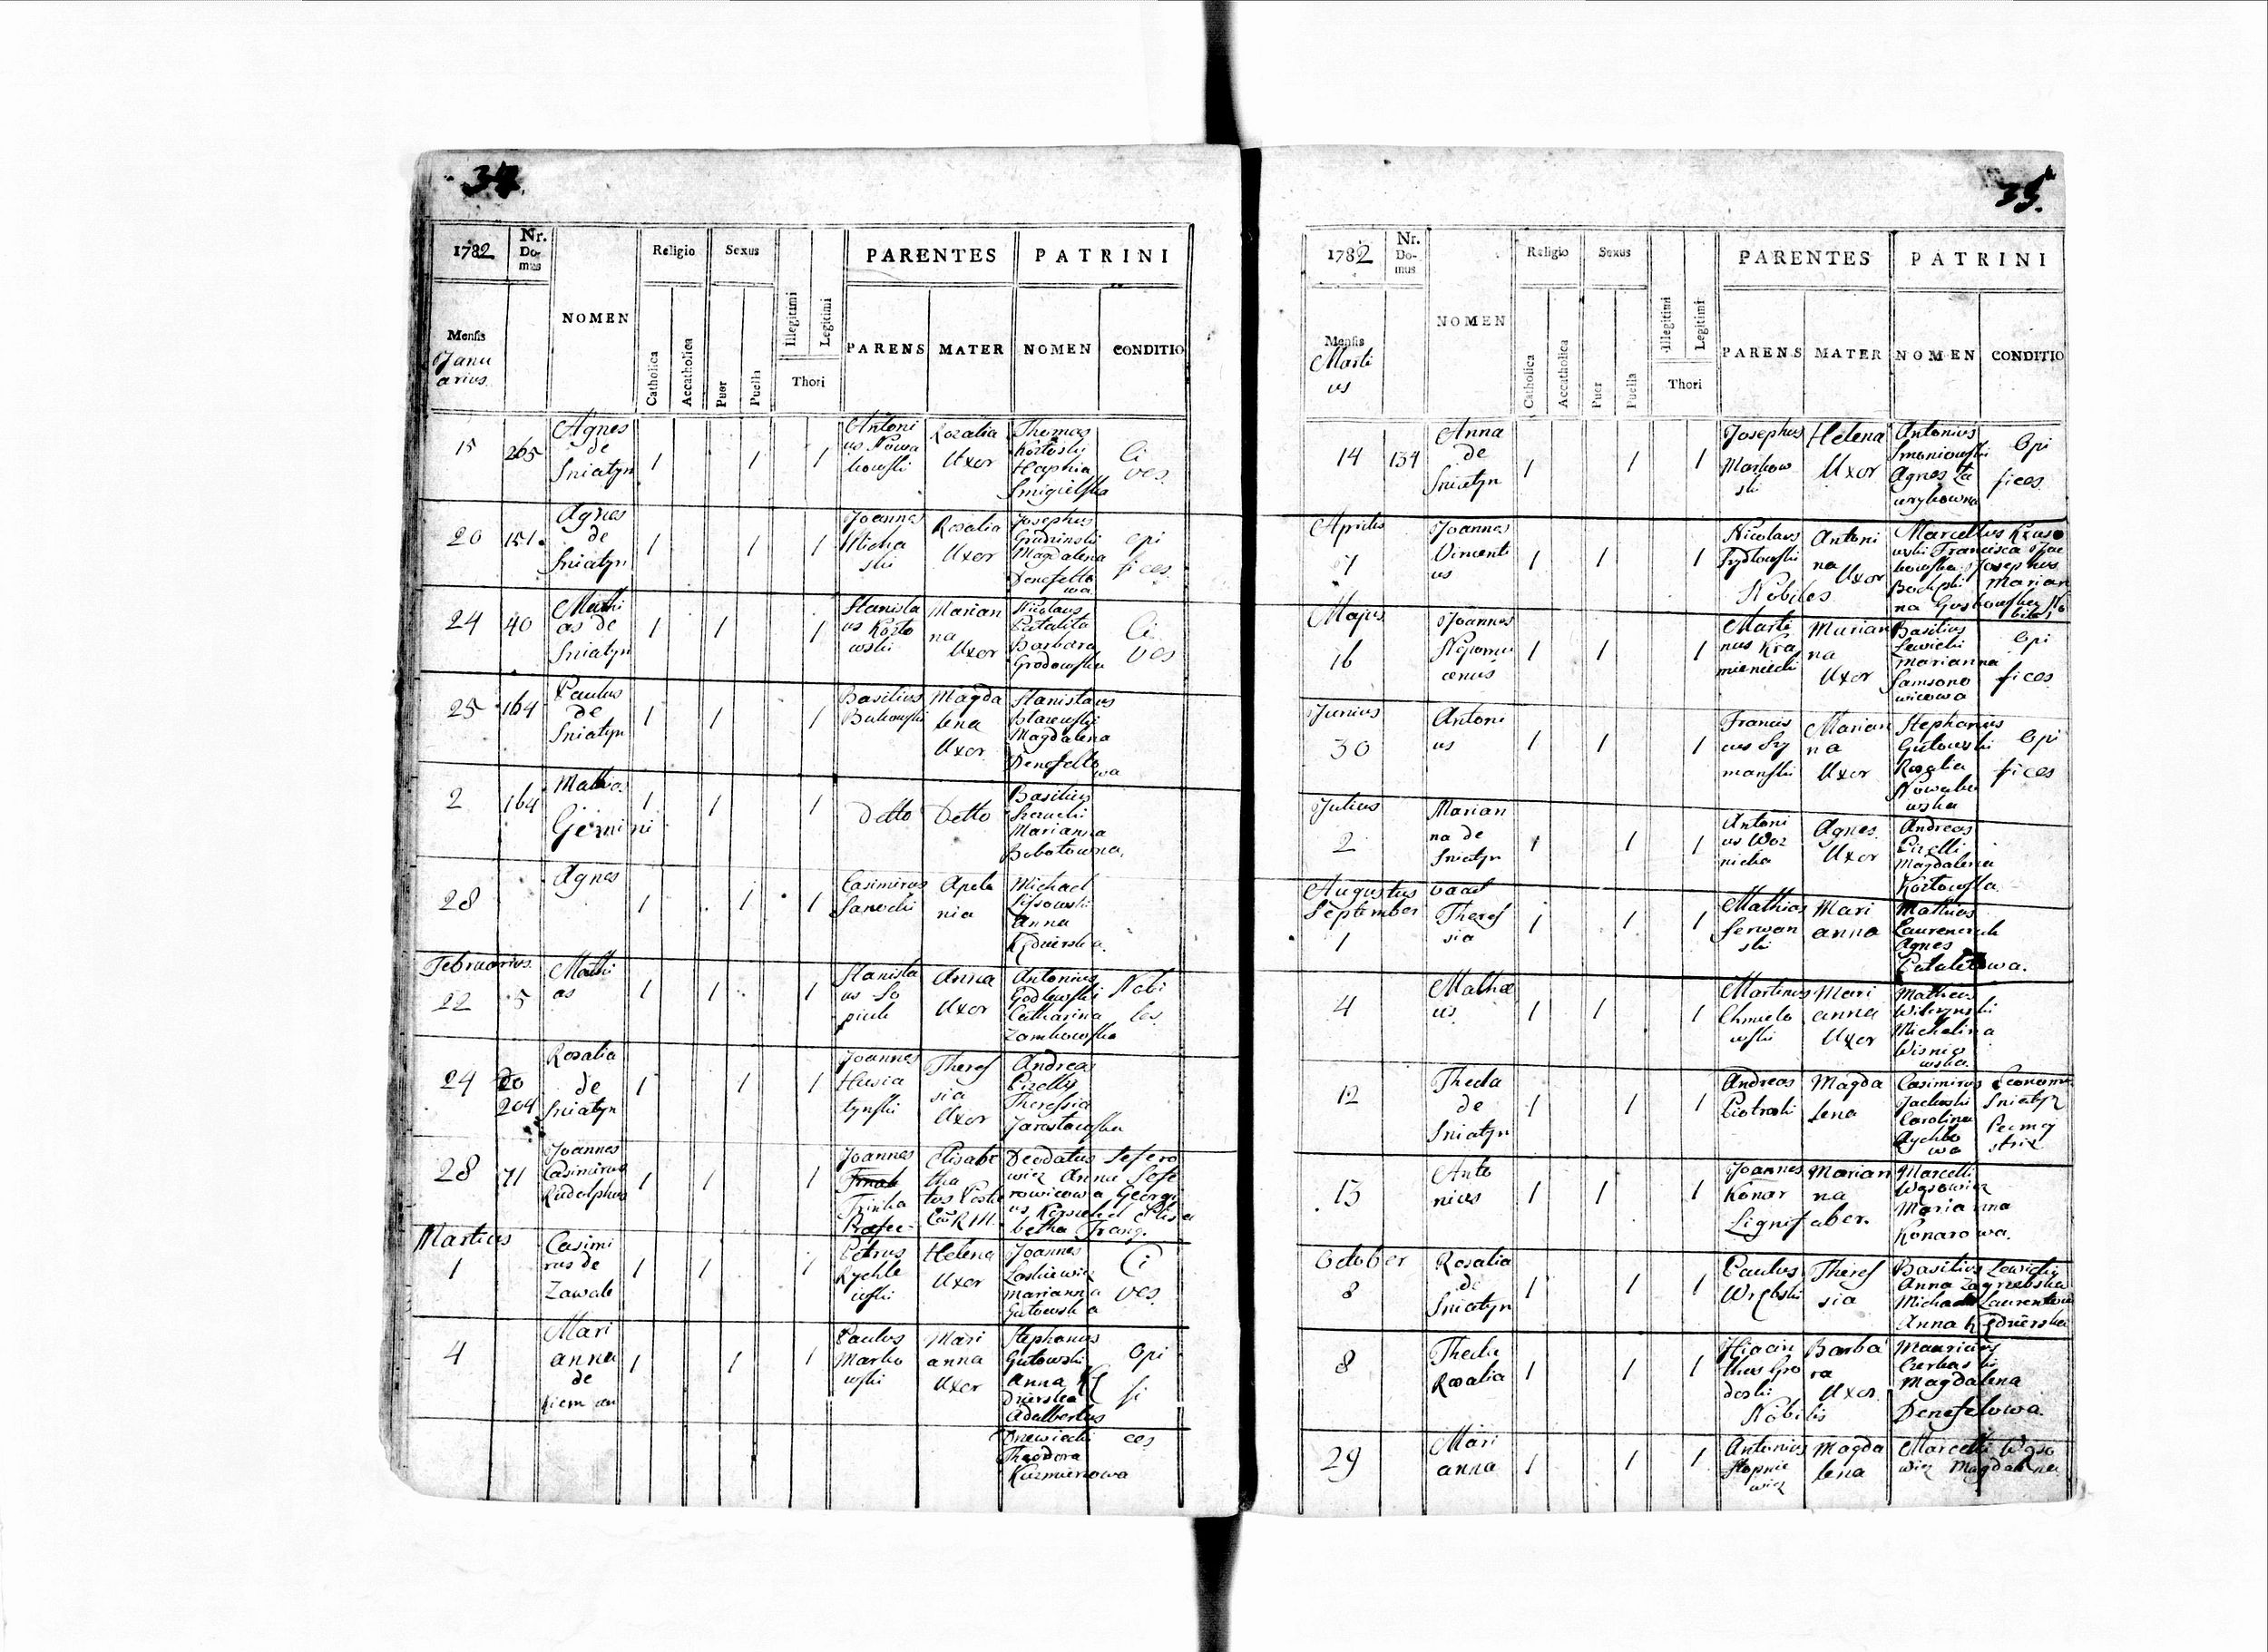 34.
1782
Nr. Do- mus
NOMEN
Religio
Sexus
PARENTES
PATRINI
Mensis
Janu
arius.
Catholica
Accatholica
Puer
Puella
Illegitimi
Legitimi
Thori
PARENS
MATER
NOMEN
CONDITIO
15 265 Agnes de Sniatyn 1 1 1 Antoni us Nowa kowski Rozalia Uxor Thomas Smigielska Ci ves.
20 151. Agnes de Sniatyn 1 1 1 Joannes Micha ski Rosalia Uxor Josephus Grudzinski Magdalena Denefelto wa opi fices.
24 40 Mathi as de Sniatyn 1 1 1 Stanisla us Kozto wski Marian na Uxor Nicolaus Patalita Barbara Grodowska Ci ves
25 164 Paulus de Sniatyn 1 1 1 Basilius Bukowski Magda lena Uxor Stanislaus Magdalena Denefelto wa
2 164 Mathias Gemini 1 1 1 Detto Detto Basilius Marianna Bobotowna.
28 Agnes 1 1 1 Casimirus Sanocki Apolo nia Michael Lissowski Anna Kędzierska.
Februarius.
22 5 Mathi as 1 1 1 Stanisla us So Anna Uxor Antonius Godlewski Catharina Zambowska Nobi les.
24 20 204 Rosalia de Sniatyn 1 1 1 Joannes Husia tynski Theres sia Uxor Andreas Pizelly Theressia Jarostawska
28 71 Joannes Casimirus Rudolphus 1 1 1 Joannes Trinka Præfec- Elisabe tha tus Deodatus Sefero wicz Anna Sefe rowicowa Georgi us Elisa betha Franq.
Martius
1 Casimi rus de Zawale 1 1 1 Petrus Rychle wski Helena Uxor Joannes Laskiewicz Marianna Gutowska Ci ves.
4 Mari anna de 1 1 1 Paulus Marko wski Mari anna Uxor Stephanus Gutowski Anna Kę dzierska Adalbertus Drzewiecki Theodora Kuzmierzowa Opi fi ces
35.
1782
Nr. Do- mus
NOMEN
Religio
Sexus
PARENTES
PATRINI
Mensis
Marti
us
Catholica
Accatholica
Puer
Puella
Illegitimi
Legitimi
Thori
PARENS
MATER
NOMEN
CONDITIO
14 134 Anna de Sniatyn 1 1 1 Josephus Markow ski Helena Uxor Antonius Smoniowski Agnes Opi fices.
Aprilis
7 Joannes Vincenti us 1 1 1 Nicolaus Frydlowski Nobiles Antoni na Uxor Marcellus Francisca Josephus Marian na No biles
Majus
16 Joannes Nepomu cenus 1 1 1 Marti nus Kra mieniecki Marian na Uxor Basilius Lewicki Marianna Samsono wicowa Opi fices
Junius
30 Antoni us 1 1 1 Francis cus Szy manski Marian na Uxor Stephanus Gutowski Rosalia Nowako wska Opi fices
Julius
2 Marian na de Sniatyn 1 1 1 Antoni us Woz nicka Agnes Uxor Andreas Pizelli Magdalena Koztowska
Augustus vacat
September
1 Theres sia 1 1 1 Mathias Serwan ski Mari anna Mathias Agnes Patalitowa.
4 Mathæ us. 1 1 1 Martinus Chmielo wski Mari anna Uxor Matheus Wilczynski Michelina Wisnio wska.
12 Thecla de Sniatyn 1 1 1 Andreas Piotroski Magda lena Casimirus Carolina Rychlo wa Sniatyn
13 Anto nius 1 1 1 Joannes Konar Lignifaber. Marian na Marcelli Wąsowicz Marianna Konarowa.
October
8 Rosalia de Sniatyn 1 1 1 Paulus Wrębski Theres sia Basilius Lewicky Anna Zagrzebska Michael Anna Kędzierska
8 Thecla Rosalia 1 1 1 Hiacin thus Gro doski Nobilis Barba ra Uxor. Mauricius Magdalena Denefelowa.
29 Mari anna 1 1 1 Antonius Stopnie wicz Magda lena Marcelli Wąso wicz Magdalena